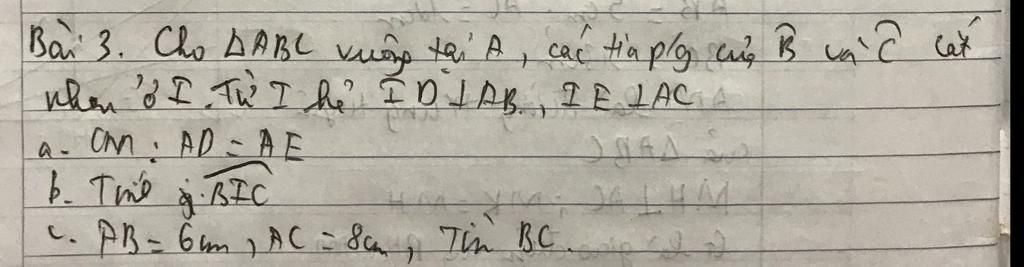 Bài 3. Cho ΔABC vuông tại A, các tia p/g của B̂ và Ĉ cắt
nhau ở I. Từ I hạ ID ⊥ AB, IE ⊥ AC
a. CM: AD = AE
b. Tính g. BIC
c. AB = 6cm, AC = 8cm, Tín BC.